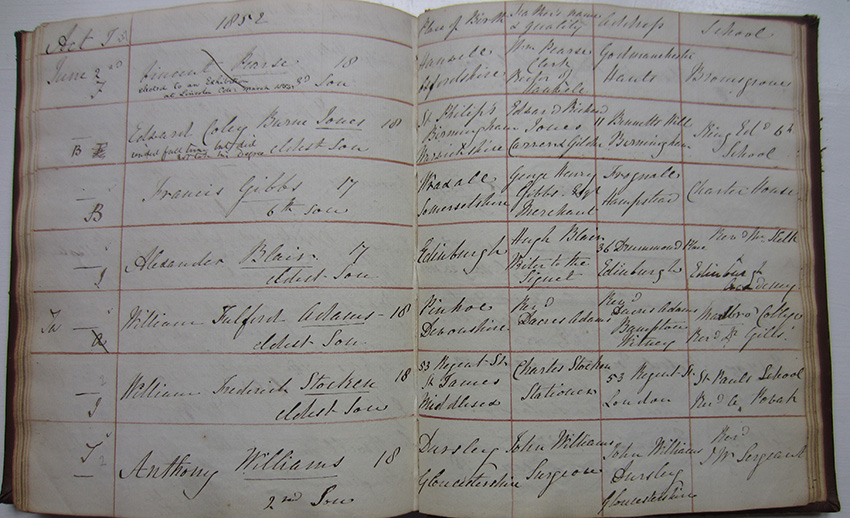 1852
Act T
Place of Birth Father's name & quality Address School
June 2nd
Vincent Pearse 18
elected to an Exhibition
at Lincoln Coll: March
3rd Son
Oxfordshire
Wm Pearse
Clerk
Rector of
Hanwell
Godmanchester
Hants
Bromsgrove
B
Edward Coley Burne Jones 18
resided full time but did
not take his Degree
eldest Son
St Philip's
Birmingham
Warwickshire
Edward Richard
Jones
Carver & Gilder
11 Bennetts Hill
Birmingham
King Edd 6th
School
B
Francis Gibbs 17
6th Son
Wraxall
Somersetshire
George Henry
Gibbs Esqr
Merchant
Frognall
Hampstead
Charter House
Alexander Blair 17
eldest Son
Edinburgh
Hugh Blair
Writer to the
Signet
36 Drummond Place
Edinburgh
Edinburgh
Academy
William Fulford Adams - 18
eldest Son
Pinhoe
Devonshire
Revd
Dacres Adams
Revd
Dacres Adams
Bampton
Witney
Marlbro' College
William Frederick Stocken 18
eldest Son
53 Regent St
St James
Middlesex
Charles Stocken
Stationer
53 Regent St
London
St Pauls School
Anthony Williams 18
2nd Son
Dursley
Gloucestershire
John Williams
Surgeon
John Williams
Dursley
Gloucestershire
Revd